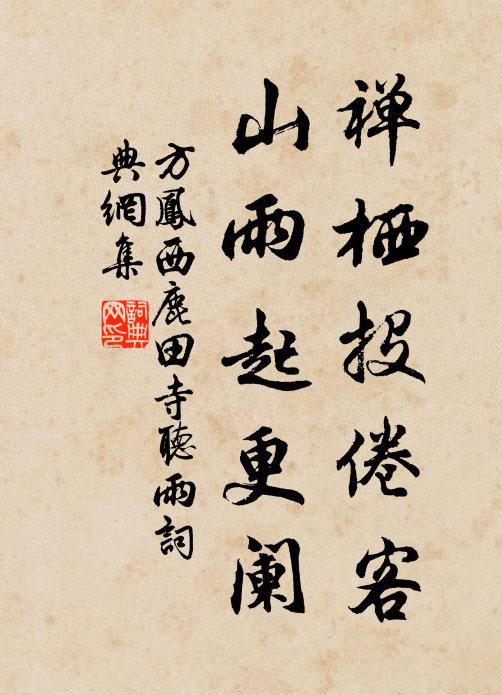 禅栖投倦客
山雨起更阑
方鳳西鹿田寺聽雨詞
典網集
詞典
网印